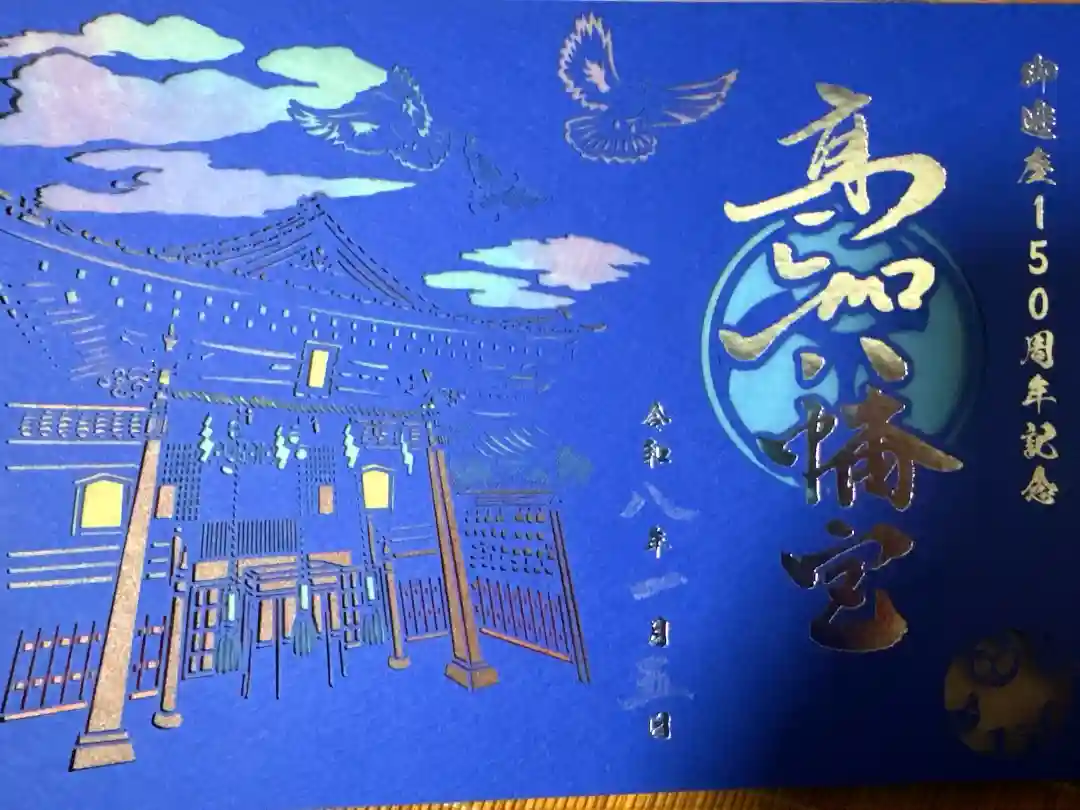 御遷座150周年記念
高知八幡宮
令和八年一月五日